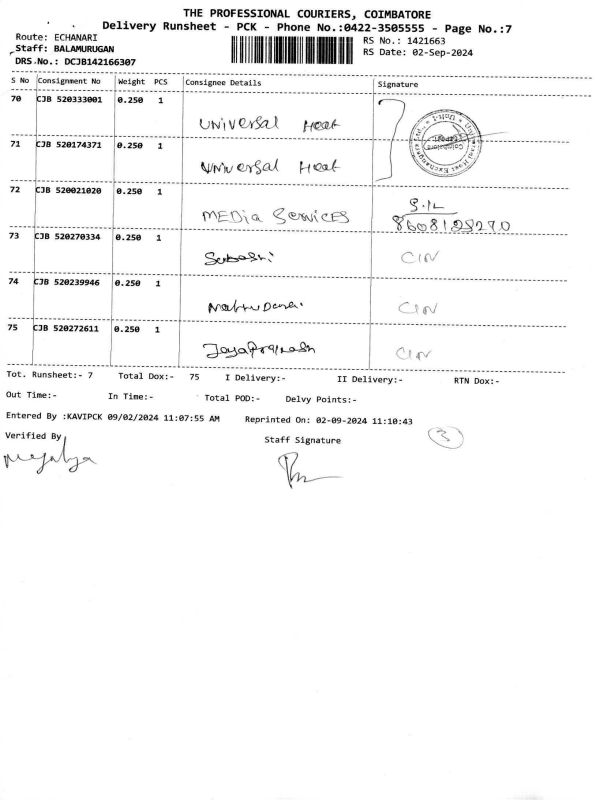 THE PROFESSIONAL COURIERS, COIMBATORE
Delivery Runsheet - PCK - Phone No.:0422-3505555 - Page No.:7
Route: ECHANARI
RS No.: 1421663
Staff: BALAMURUGAN
RS Date: 02-Sep-2024
DRS No.: DCJB142166307
S No Consignment No Weight PCS Consignee Details Signature
70 CJB 520333001 0.250 1
Universal Heat
71 CJB 520174371 0.250 1
Universal Heat
72 CJB 520021020 0.250 1
MEDia Services
73 CJB 520270334 0.250 1
74 CJB 520239946 0.250 1
75 CJB 520272611 0.250 1
Tot. Runsheet:- 7 Total Dox:- 75 I Delivery:- II Delivery:- RTN Dox:-
Out Time:- In Time:- Total POD:- Delvy Points:-
Entered By :KAVIPCK 09/02/2024 11:07:55 AM Reprinted On: 02-09-2024 11:10:43
3
Verified By
Staff Signature